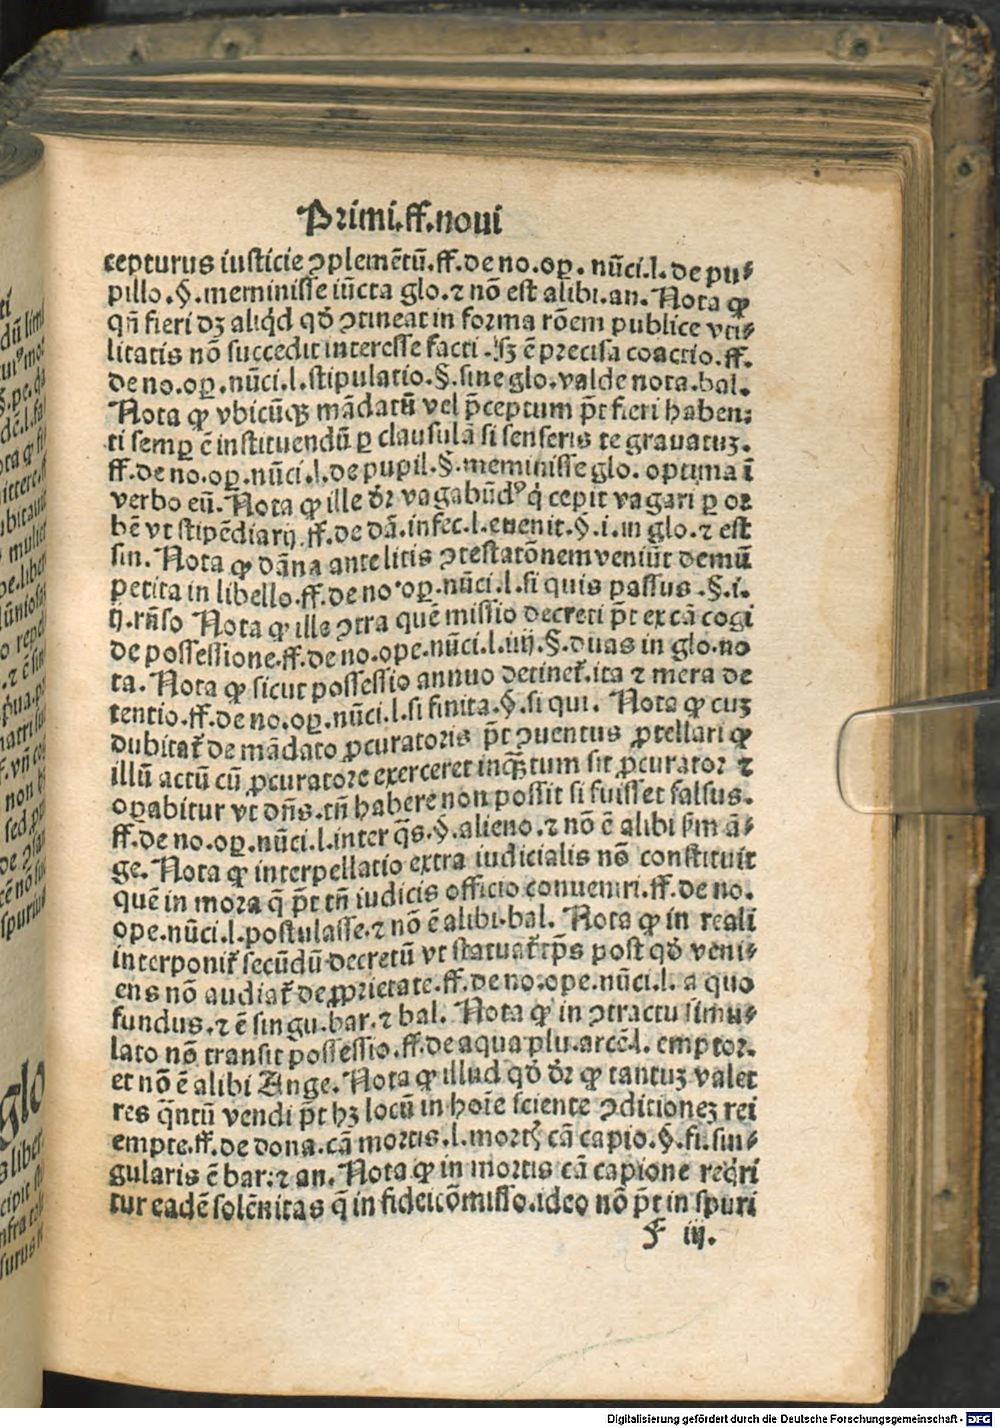 Primi.ff.noui
cepturus iusticie ꝯplemētū.ff.de no.oꝑ. nūci.l. de pu⸗
pillo.§.meminisse iūcta glo.⁊ nō est alibi.an. Nota ꝙ
qñ fieri dꝫ aliq̇d qđ ꝯtineat in forma rōem publice vti⸗
litatis nō succedit interesse facti .sꝫ ē precisa coactio.ff.
de no.oꝑ.nūci.l.stipulatio.§.sine glo.valde nota.bal.
Nota ꝙ vbicūqꝫ mādatū vel p̄ceptum pt̄ fieri haben⸗
ti semꝑ ē instituendū ꝑ clausulā si senseris te grauatuꝫ.
ff.de no.oꝑ.nūci.l.de pupil.§.meminisse glo. optima ī
verbo eū. Nota ꝙ ille dr̄ vagabūdꝰ q̇ cepit vagari ꝑ or
bē vt stipēdiarij.ff.de dā.infec.l.euenit.§.i.in glo.⁊ est
sin. Nota ꝙ dāna ante litis ꝯtestatōnem veniūt demū
petita in libello.ff.de no.oꝑ.nūci.l.si quis passus.§.i.
ij.rn̄so Nota ꝙ ille ꝯtra quē missio decreti pt̄ ex cā cogi
de possessione.ff.de no.ope.nūci.l.iiij.§.duas in glo.no
ta. Nota ꝙ sicut possessio annuo detinet̄.ita ⁊ mera de
tentio.ff.de no.oꝑ.nūci.l.si finita.§.si qui. Nota ꝙ cuꝫ
dubitat̄ de mādato ꝓcuratoris pt̄ ꝯuentus ꝓtestari ꝙ
illū actū cū ꝓcuratore exerceret inqꝫtum sit ꝓcurator ⁊
oꝑabitur vt dn̄s.tn̄ habere non possit si fuisset falsus.
ff.de no.oꝑ.nūci.l.inter q̄s.§.alieno.⁊ nō ē alibi sm̄ ā⸗
ge. Nota ꝙ interpellatio extra iudicialis nō constituit
quē in mora q̄ pt̄ tn̄ iudicis officio conueniri.ff.de no.
ope.nūci.l.postulasse.⁊ nō ē alibi.bal. Nota ꝙ in reali
interponit̄ secūdū decretū vt statuat̄ tp̄s post qđ veni⸗
ens nō audiat̄ de ꝓprietate.ff.de no.ope.nūci.l. a quo
fundus.⁊ ē singu.bar.⁊ bal. Nota ꝙ in ꝯtractu simu⸗
lato nō transit possessio.ff.de aqua plu.arcē.l. emptor.
et nō ē alibi Ange. Nota ꝙ illud qđ dr̄ ꝙ tantuꝫ valet
res q̄ntū vendi pt̄ hꝫ locū in hoīe sciente ꝯditioneꝫ rei
empte.ff.de dona.cā mortis.l.mortꝭ cā capio.§.fi.sin⸗
gularis ē bar.⁊ an. Nota ꝙ in mortis cā capione req̇ri
tur eadē solēnitas q̄ in fideicōmisso.ideo nō pt̄ in spuri
f iij.
Digitalisierung gefördert durch die Deutsche Forschungsgemeinschaft - DFG